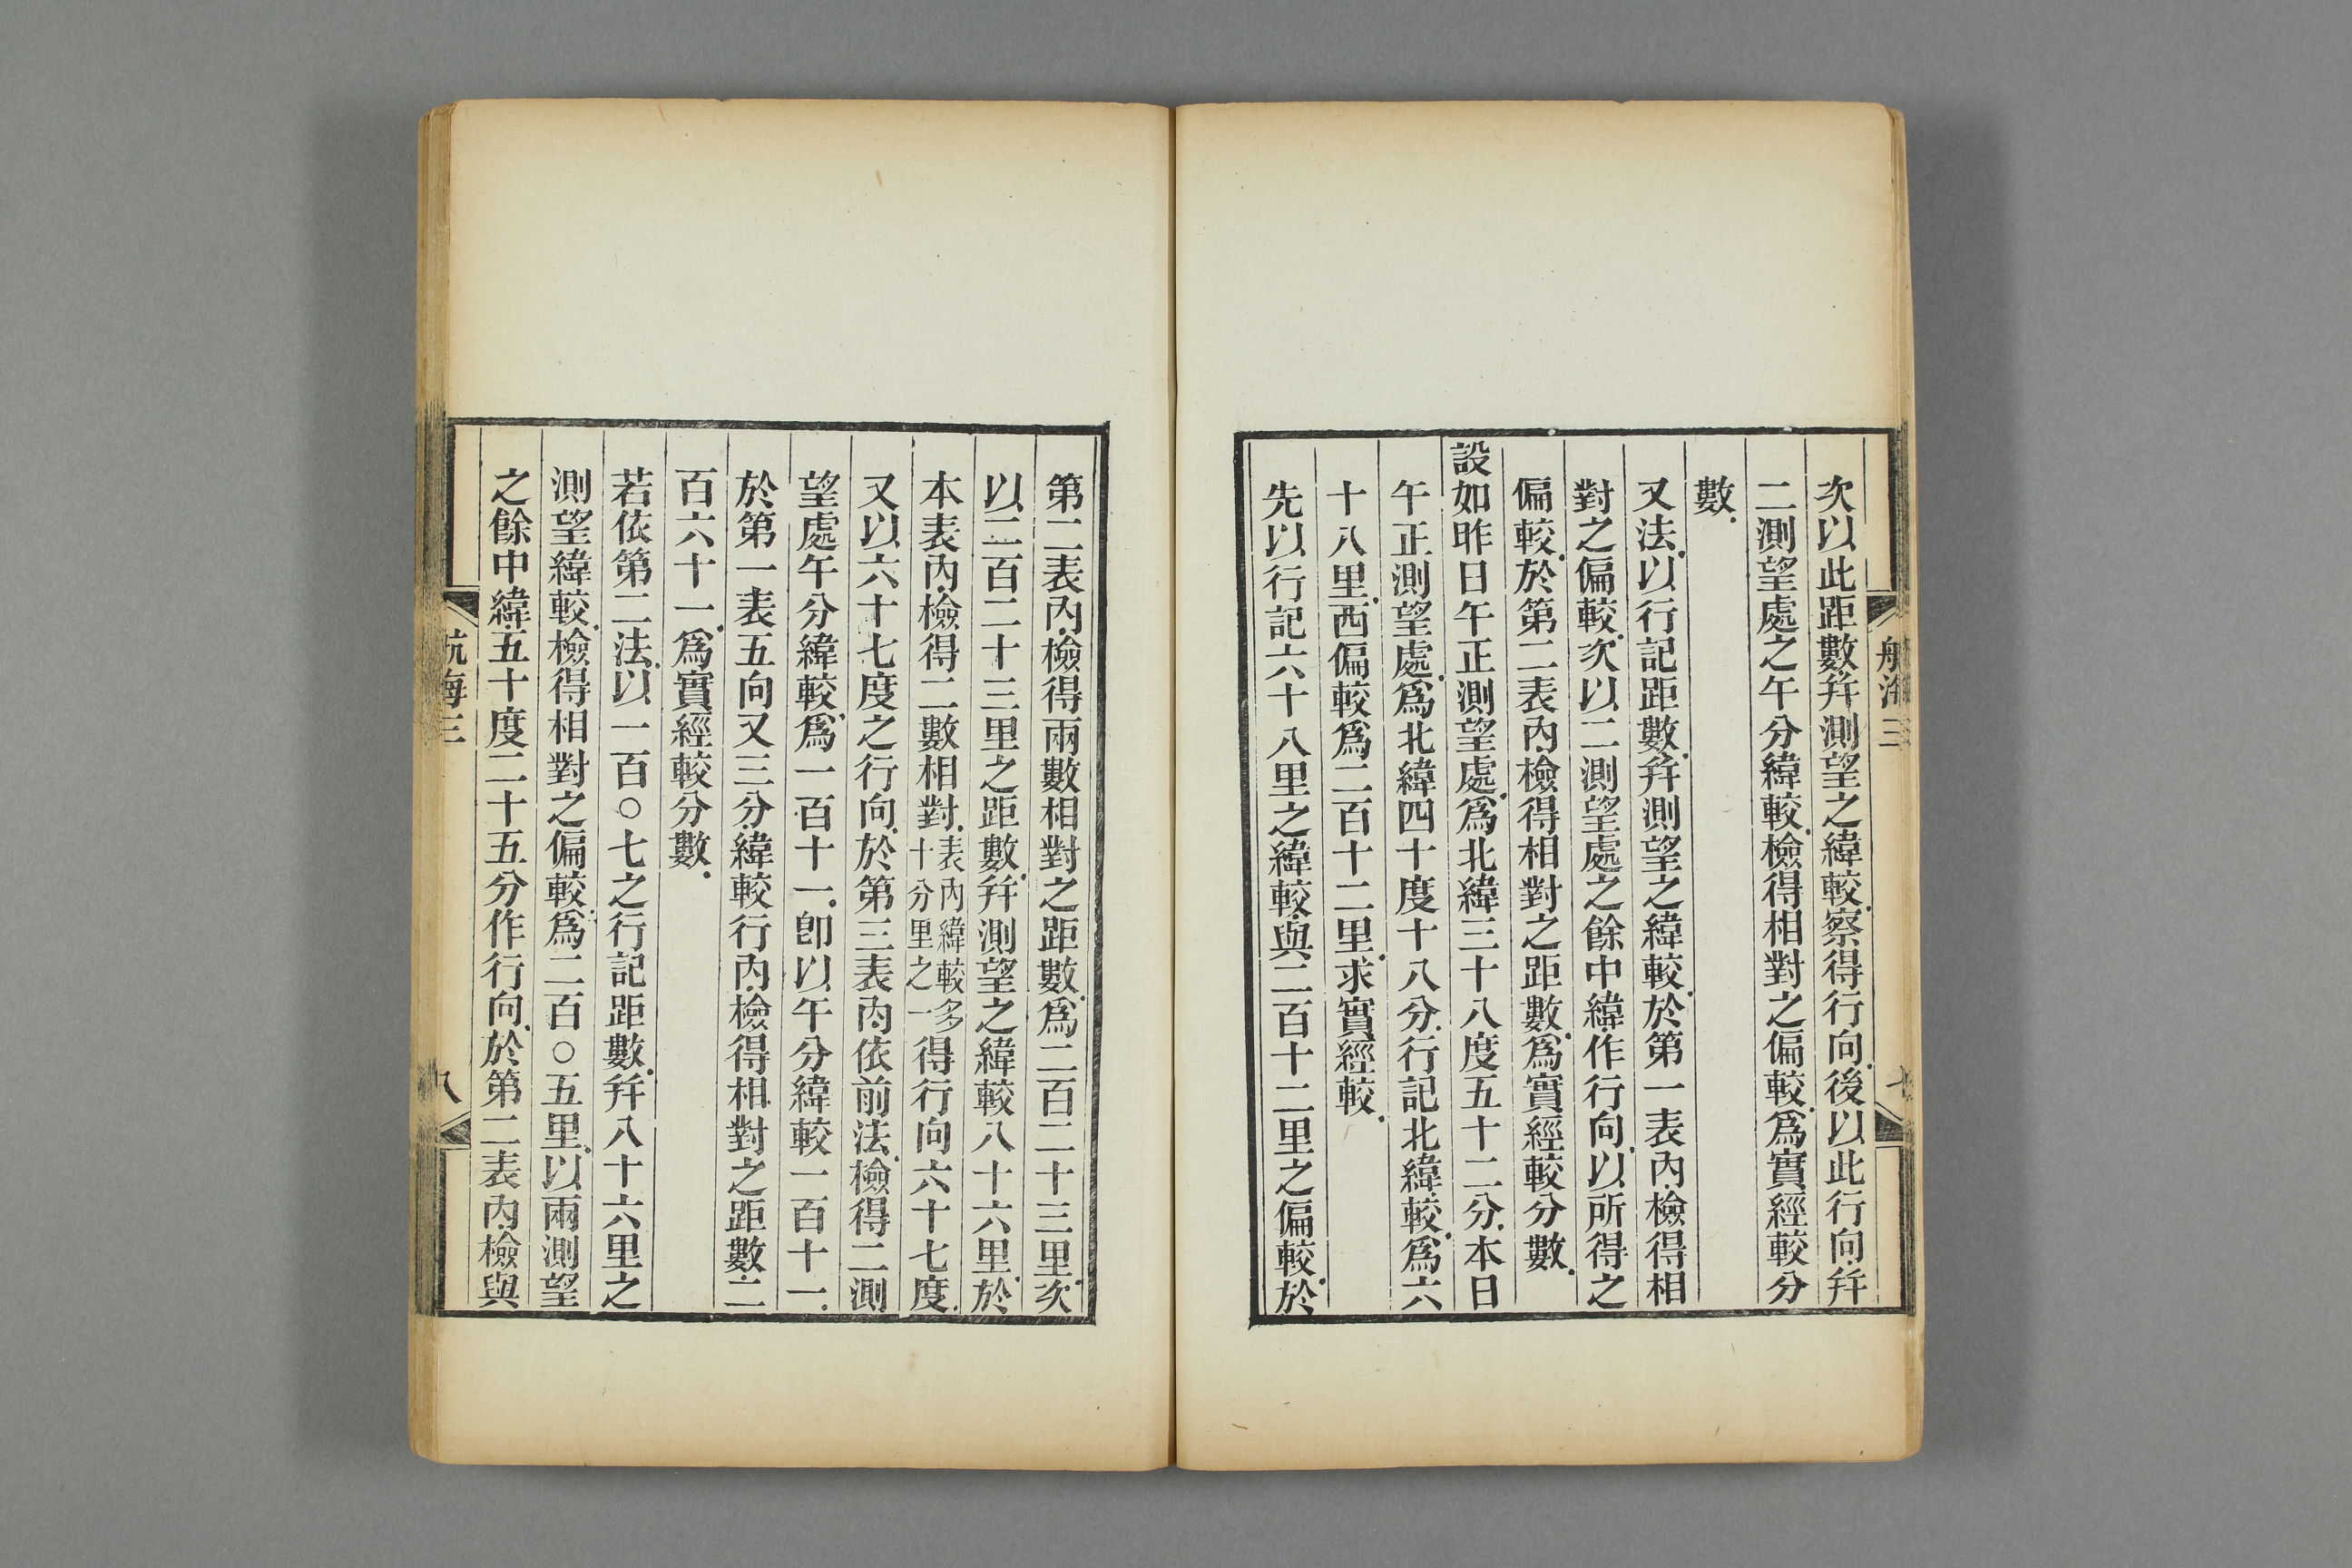 航海三
七
次以此距數幷測望之緯較察得行向後以此行向幷
二測望處之午分緯較檢得相對之偏較爲實經較分
數
又法以行記距數幷測望之緯較於第一表內檢得相
對之偏較次以二測望處之餘中緯作行向以所得之
偏較於第二表內檢得相對之距數爲實經較分數
設如昨日午正測望處爲北緯三十八度五十二分本日
午正測望處爲北緯四十度十八分行記北緯較爲六
十八里西偏較爲二百十二里求實經較
先以行記六十八里之緯較與二百十二里之偏較於
第二表內檢得兩數相對之距數爲二百二十三里次
以二百二十三里之距數幷測望之緯較八十六里於
本表內檢得二數相對表內緯較多十分里之一得行向六十七度
又以六十七度之行向於第三表內依前法檢得二測
望處午分緯較爲一百十一卽以午分緯較一百十一
於第一表五向又三分緯較行內檢得相對之距數二
百六十一爲實經較分數
若依第二法以一百〇七之行記距數幷八十六里之
測望緯較檢得相對之偏較爲二百〇五里以兩測望
之餘中緯五十度二十五分作行向於第二表內檢與
航海三
八